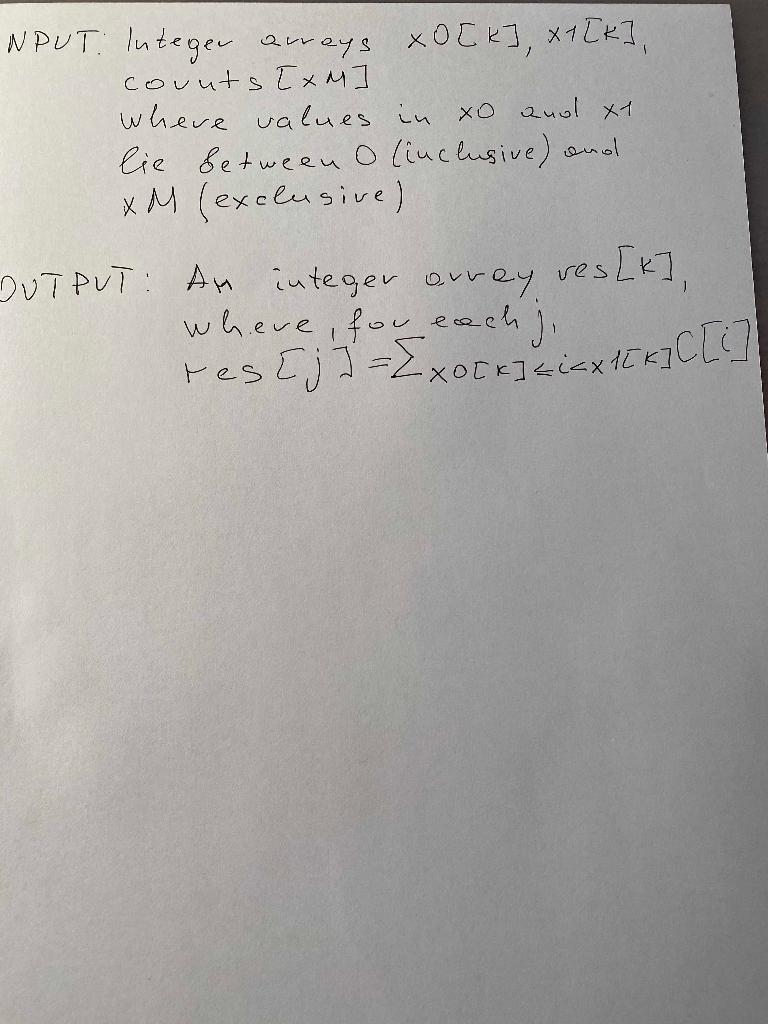 NPUT: Integer arrays x0[k], x1[k],
counts[xM]
where values in x0 and x1
lie between 0 (inclusive) and
xM (exclusive)
OUTPUT: An integer array res[k],
where, for each j,
res[j] = ∑ x0[k]≤i<x1[k] C[i]